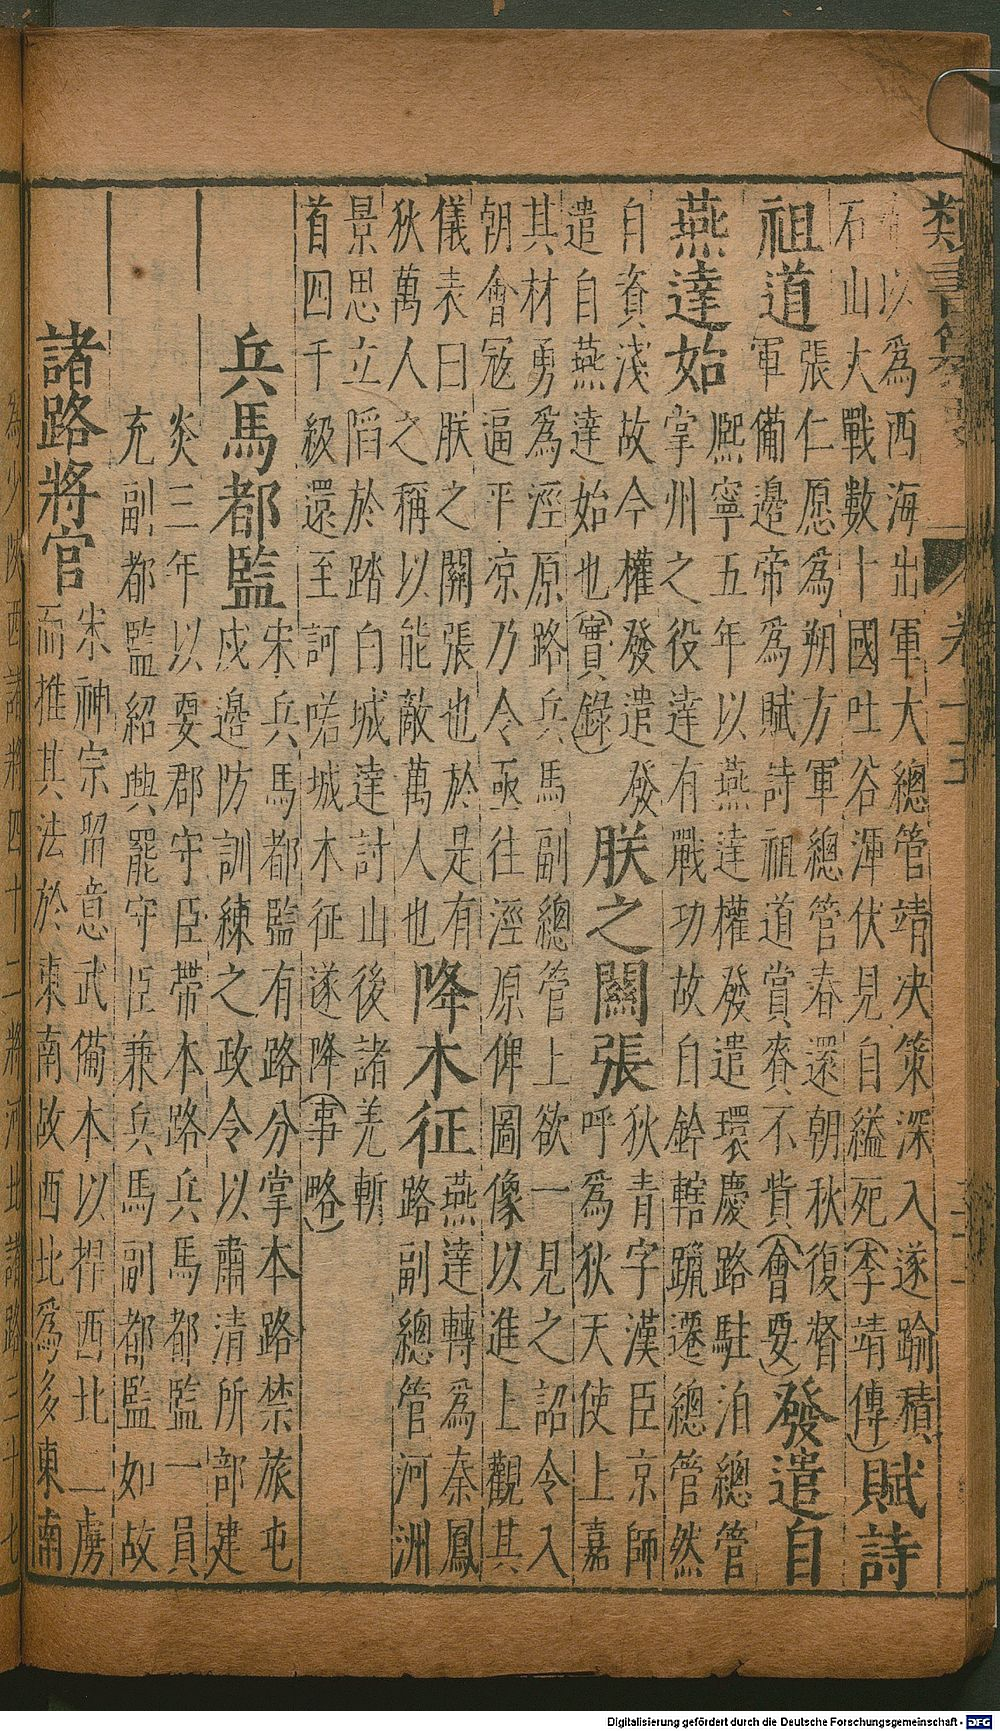 類書纂
以爲西海出軍大總管靖決策深入遂踰積
石山大戰數十國吐谷渾伏見自縊死(李靖傳)
賦詩祖道
張仁愿爲朔方軍總管春還朝秋復督
軍備邊帝爲賦詩祖道賞賚不貲(會要)
發遣自燕達始
熈寧五年以燕達權發遣環慶路駐泊總管
掌州之役達有戰功故自鈐轄躐遷總管然
自資淺故今權發遣發
遣自燕達始也(實錄)
朕之關張
狄青字漢臣京師
呼爲狄天使上嘉
其材勇爲涇原路兵馬副總管上欲一見之詔令入
朝會寇逼平凉乃令亟往涇原俾圖像以進上觀其
儀表曰朕之關張也於是有
狄萬人之稱以能敵萬人也
降木征
燕達轉爲秦鳳
路副總管河洲
景思立䧟於踏白城達討山後諸羌斬
首四千級還至訶咾城木征遂降(事略)
兵馬都監
宋兵馬都監有路分掌本路禁旅屯
戍邊防訓練之政令以肅清所部建
炎三年以要郡守臣帶本路兵馬都監一員
充副都監紹興罷守臣兼兵馬副都監如故
諸路將官
宋神宗畱意武備本以捍西北二虜
而推其法於東南故西北爲多東南
Digitalisierung gefördert durch die Deutsche Forschungsgemeinschaft - DFG